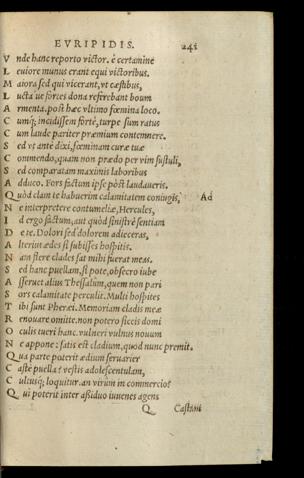 EVRIPIDIS. 241
V nde hanc reporto victor. è certamine
L euiore munus erant equi victoribus.
M aiora sed qui vicerant, vt cæstibus,
L ucta´ue fortes dona referebant boum
A rmenta. post hæc vltimo fœmina loco.
C umq; incidissem fortè, turpe sum ratus
C um laude pariter præmium contemnere.
S ed vt antè dixi, fœminam curæ tuæ
C ommendo, quam non prædo per vim sustuli,
S ed comparatam maximis laboribus
A dduco. Fors factum ipse pòst laudaueris.
Q uòd clam te habuerim calamitatem coniugis, Ad
N e interpretere contumeliæ, Hercules,
I d ergo factum, aut quòd sinistrè sentiam
D e te. Dolori sed dolorem adieceras,
A lterius ædes si subisses hospitis.
N am flere clades sat mihi fuerat meas.
S ed hanc puellam, si pote, obsecro iube
A sseruet alius Thessalûm, quem non pari
S ors calamitate perculit. Multi hospites
T ibi sunt Pheræi. Memoriam cladis meæ
R enouare omitte. non potero siccis domi
O culis tueri hanc. vulneri vulnus nouum
N e appone: satis est cladium, quod nunc premit.
Q ua parte poterit ædium seruarier
C astè puella? vestis adolescentulam,
C ultusq; loquitur. an virûm in commercio?
Q ui poterit inter assiduo iuuenes agens
Q Castam